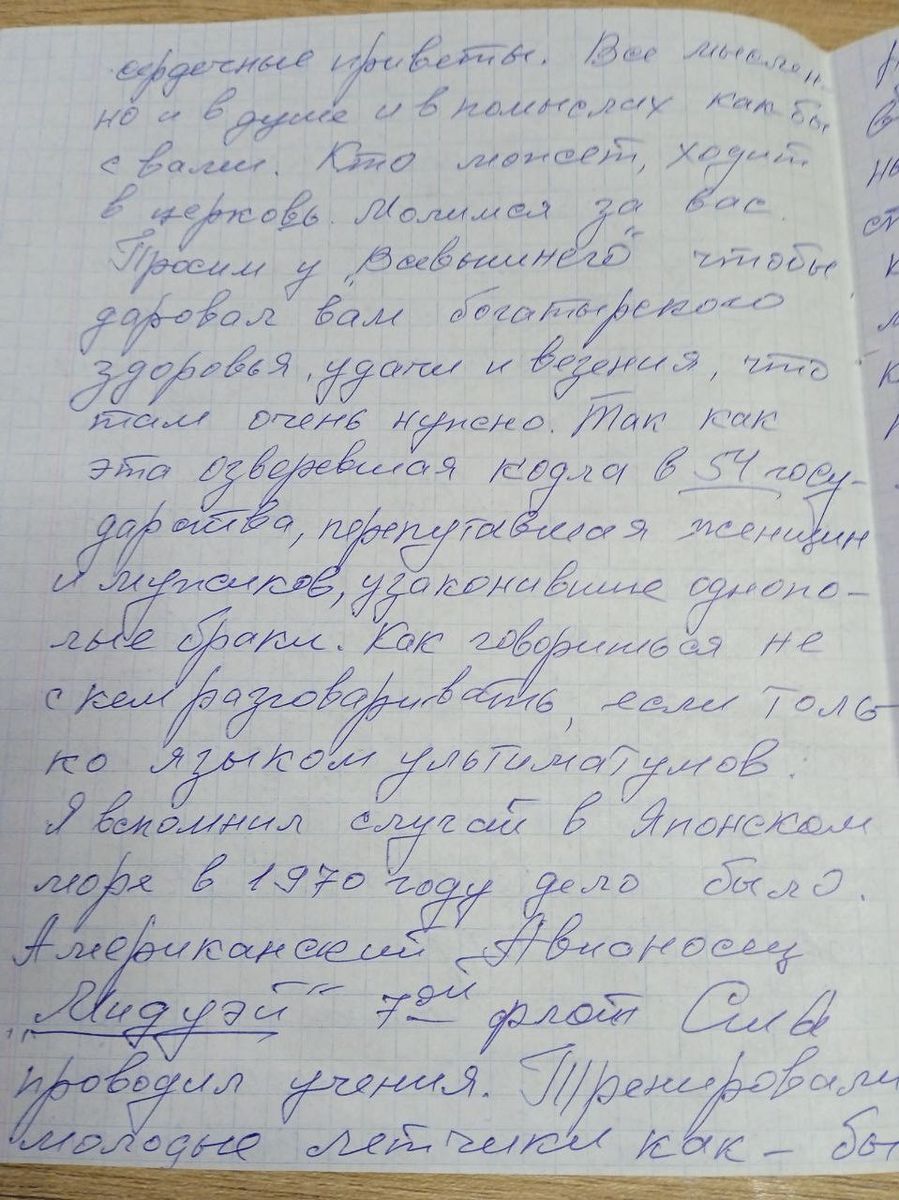 сердечные приветы. Все мыслен
но и в душе и в помыслах как-бы
с вами. Кто может, ходит
в церковь. Молимся за вас.
Просим у „Всевышнего" чтобы
даровал вам богатырского
здоровья, удачи и везения, что
там очень нужно. Так как
эта озверевшая кодла в 54 госу-
дарства, перепутавшая женщин
и мужиков, узаконившие однопо-
лые браки. Как говориться не
с кем разговаривать, если толь-
ко языком ультиматумов.
Я вспомнил случай в Японском
море в 1970 году дело было.
Американский Авианосец
„Мидуэй" 7ой флот Сша
проводил учения. Тренировали
молодые летчики как-бы